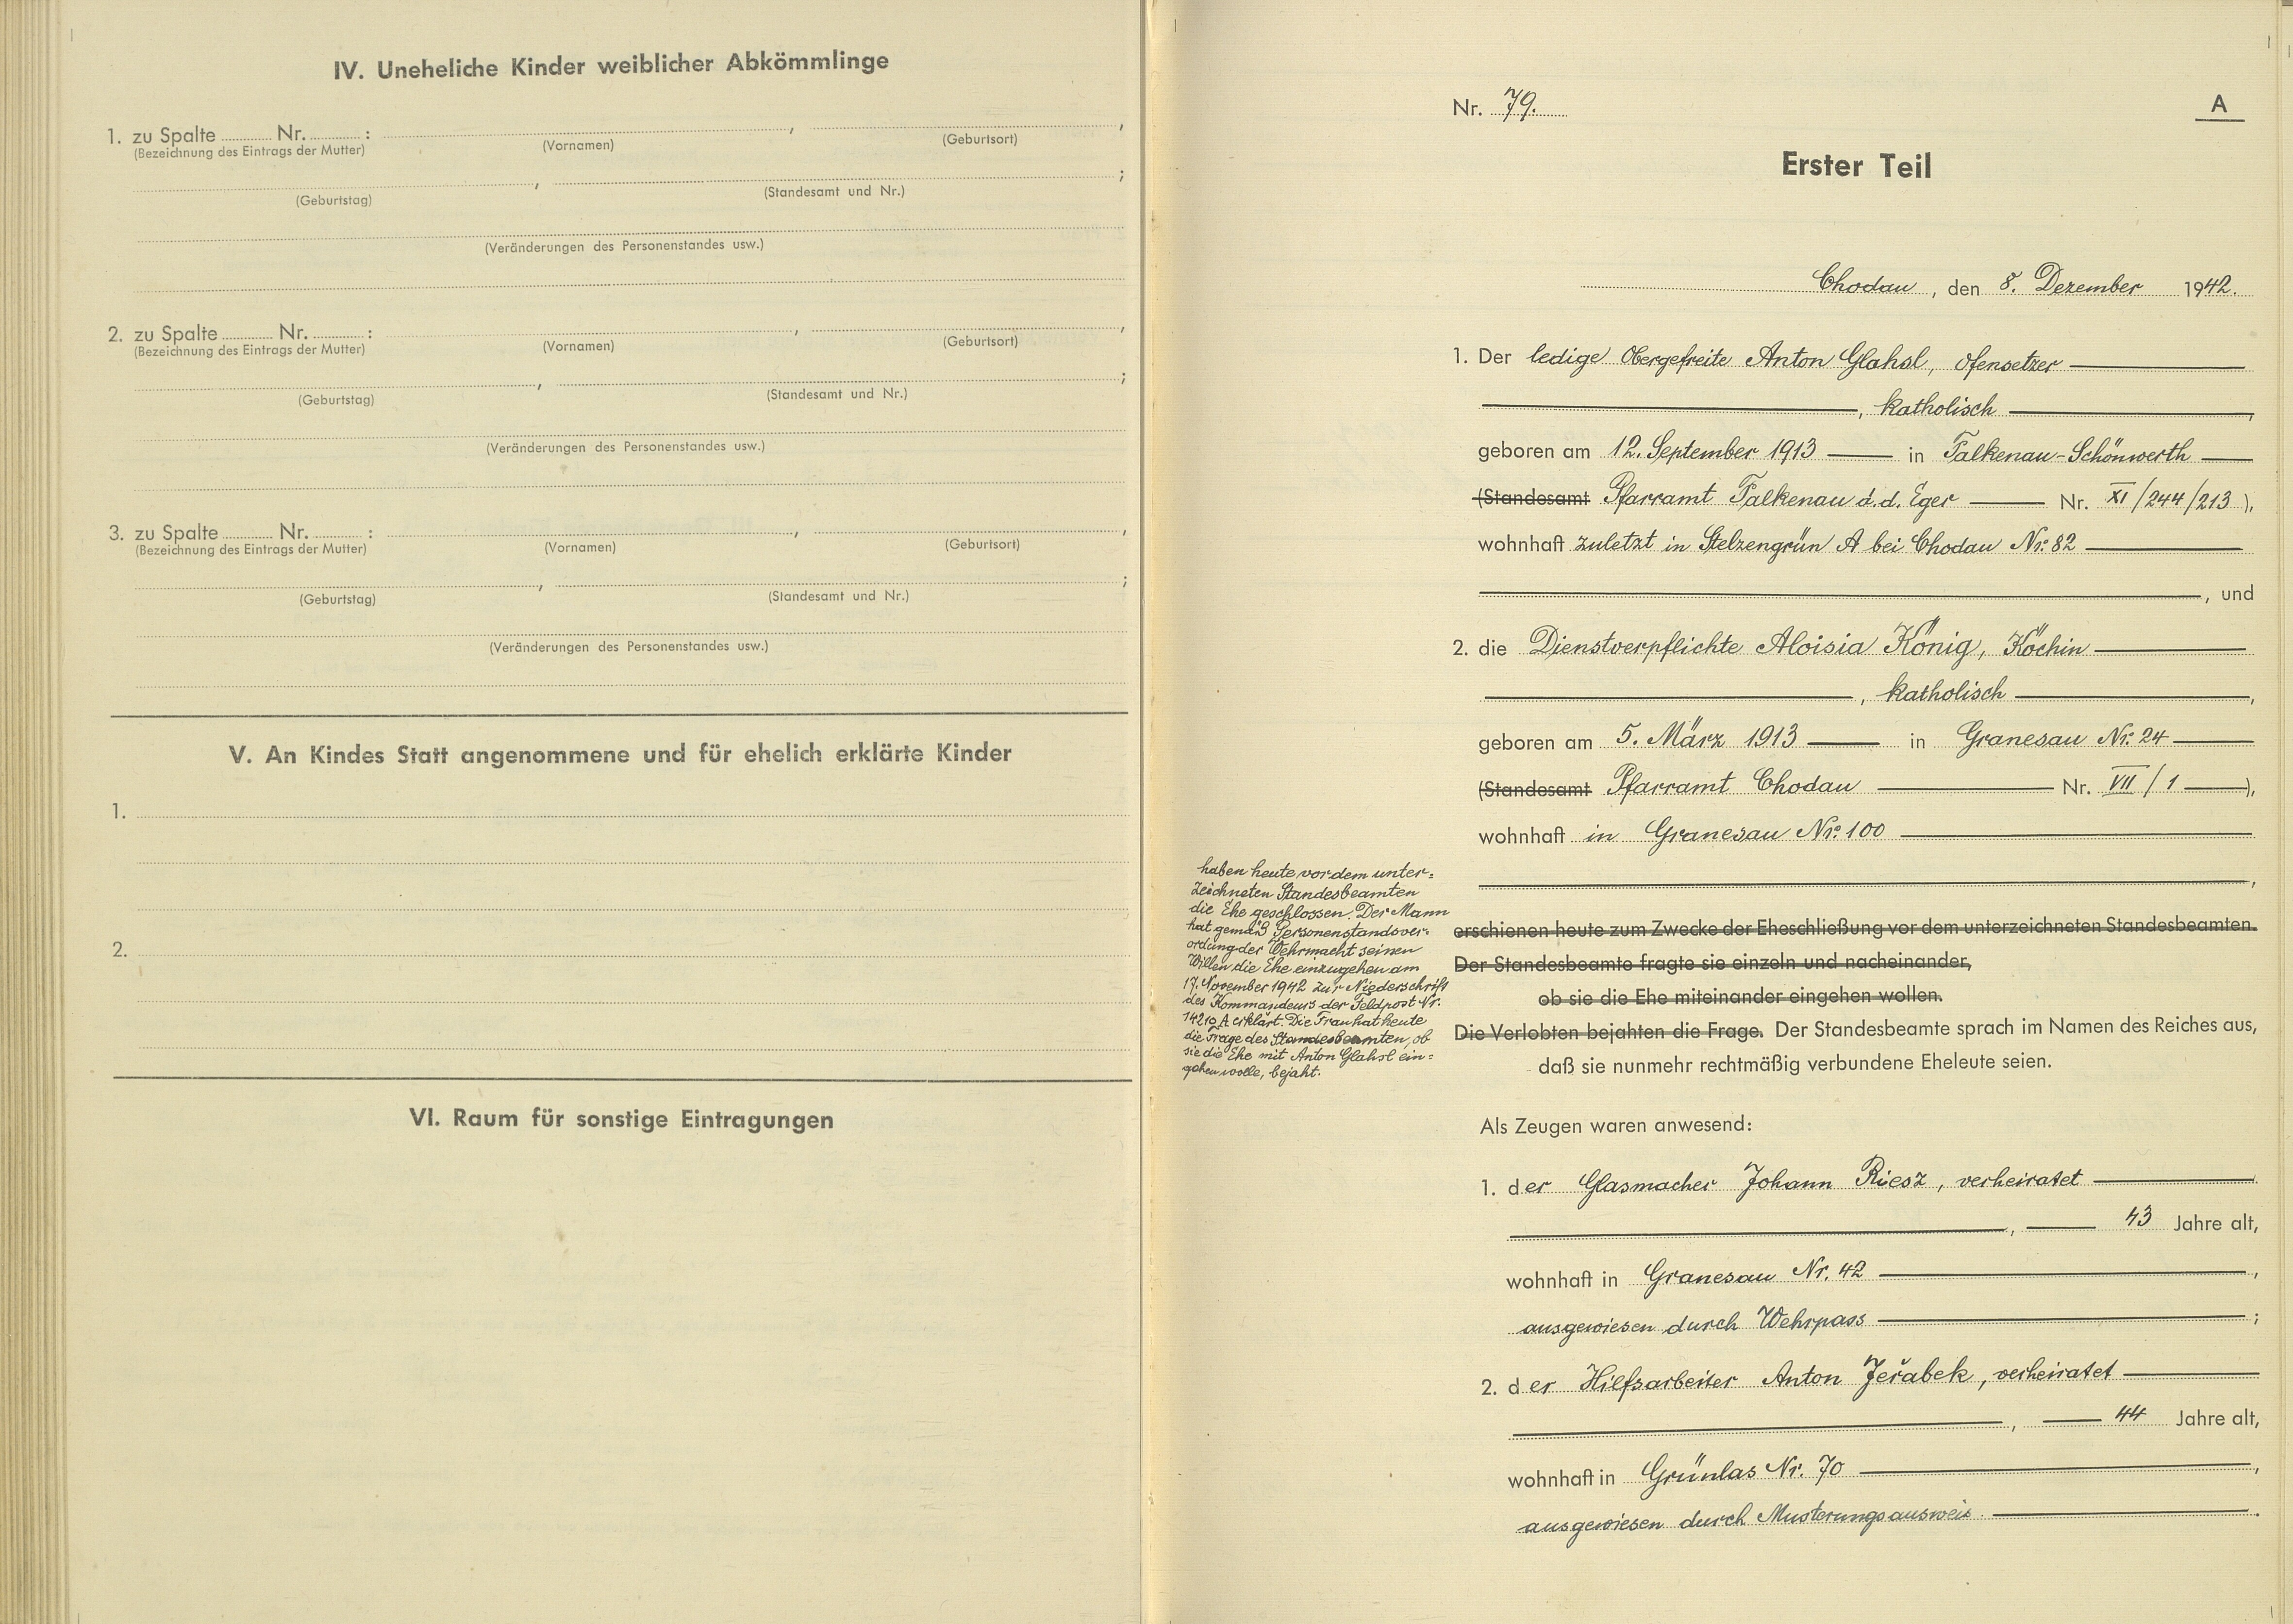 IV. Uneheliche Kinder weiblicher Abkömmlinge
1. zu Spalte Nr. : , ,
(Bezeichnung des Eintrags der Mutter) (Vornamen) (Geburtsort)
, ;
(Geburtstag) (Standesamt und Nr.)
(Veränderungen des Personenstandes usw.)
2. zu Spalte Nr. : , ,
(Bezeichnung des Eintrags der Mutter) (Vornamen) (Geburtsort)
, ;
(Geburtstag) (Standesamt und Nr.)
(Veränderungen des Personenstandes usw.)
3. zu Spalte Nr. : , ,
(Bezeichnung des Eintrags der Mutter) (Vornamen) (Geburtsort)
, ;
(Geburtstag) (Standesamt und Nr.)
(Veränderungen des Personenstandes usw.)
V. An Kindes Statt angenommene und für ehelich erklärte Kinder
1.
2.
VI. Raum für sonstige Eintragungen
Nr. 79.
A
Erster Teil
Chodau, den 8. Dezember 1942.
1. Der ledige Obergefreite Anton Glahsl, Ofensetzer
, katholisch ,
geboren am 12. September 1913 in Falkenau-Schönwerth
(Standesamt Pfarramt Falkenau a.d. Eger Nr. XI/244/213),
wohnhaft zuletzt in Stelzengrün A bei Chodau Nr. 82
, und
2. die Dienstverpflichte Aloisia König, Köchin
, katholisch ,
geboren am 5. März 1913 in Granesau Nr. 24
(Standesamt Pfarramt Chodau Nr. VII/1 ),
wohnhaft in Granesau Nr. 100
,
haben heute vor dem unter=
zeichneten Standesbeamten
die Ehe geschlossen. Der Mann
hat gemäß Personenstandsver=
ordung der Wehrmacht seinen
Willen die Ehe einzugehen am
17. November 1942 zur Niederschrift
des Kommandeurs der Feldpost Nr.
14210 A erklärt. Die Frau hat heute
die Frage des Standesbeamten, ob
sie die Ehe mit Anton Glahsl ein=
gehen wolle, bejaht.
erschienen heute zum Zwecke der Eheschließung vor dem unterzeichneten Standesbeamten.
Der Standesbeamte fragte sie einzeln und nacheinander,
ob sie die Ehe miteinander eingehen wollen.
Die Verlobten bejahten die Frage. Der Standesbeamte sprach im Namen des Reiches aus,
daß sie nunmehr rechtmäßig verbundene Eheleute seien.
Als Zeugen waren anwesend:
1. der Glasmacher Johann Riesz, verheiratet
, 43 Jahre alt,
wohnhaft in Granesau Nr. 42 ,
ausgewiesen durch Wehrpass ;
2. der Hilfsarbeiter Anton Jeřabek, verheiratet
, 44 Jahre alt,
wohnhaft in Grünlas Nr. 70 ,
ausgewiesen durch Musterungsausweis .